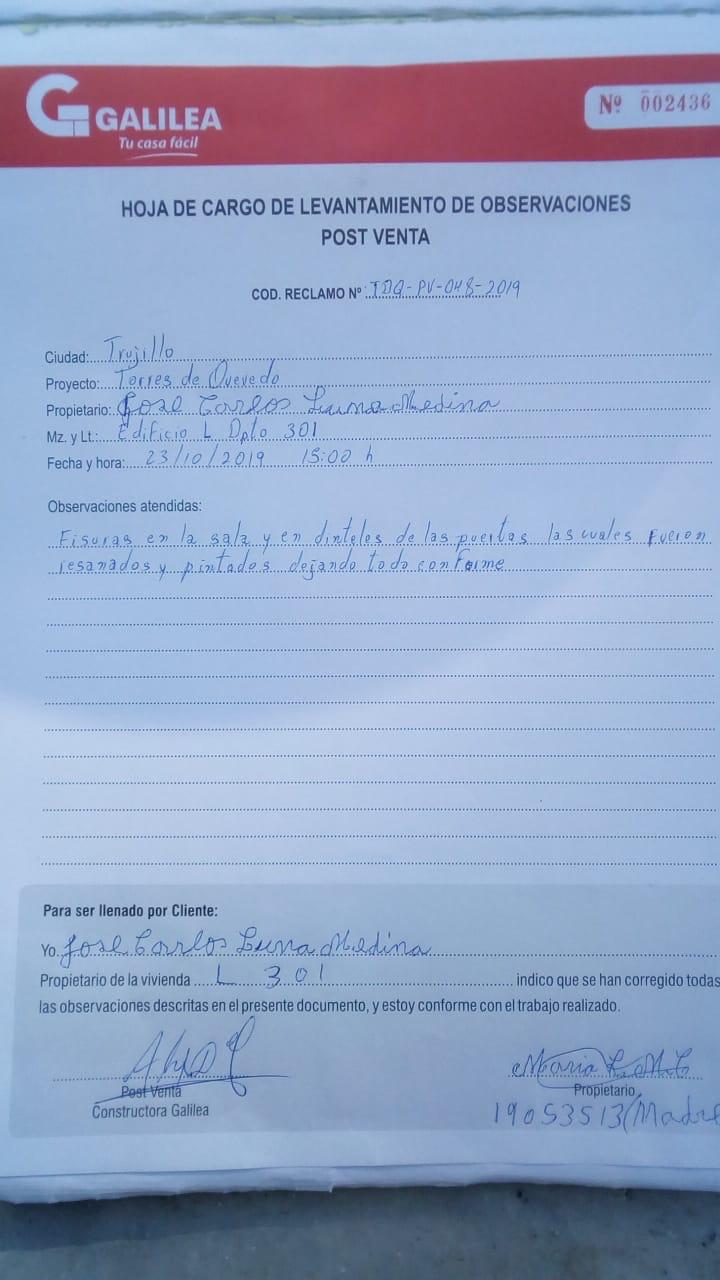 GALILEA
Tu casa fácil
Nº 002436
HOJA DE CARGO DE LEVANTAMIENTO DE OBSERVACIONES
POST VENTA
COD. RECLAMO Nº: TDQ-PV-048-2019
Ciudad: Trujillo
Proyecto: Torres de Quevedo
Propietario: Jose Carlos Luna Medina
Mz. y Lt.: Edificio L Dpto 301
Fecha y hora: 23/10/2019 15:00 h
Observaciones atendidas:
Fisuras en la sala y en dinteles de las puertas las cuales fueron
resanados y pintados dejando todo conforme
Para ser llenado por Cliente:
Yo Jose Carlos Luna Medina
Propietario de la vivienda L 301 indico que se han corregido todas
las observaciones descritas en el presente documento, y estoy conforme con el trabajo realizado.
Maria
Post Venta
Propietario
Constructora Galilea
19053513 (Madre